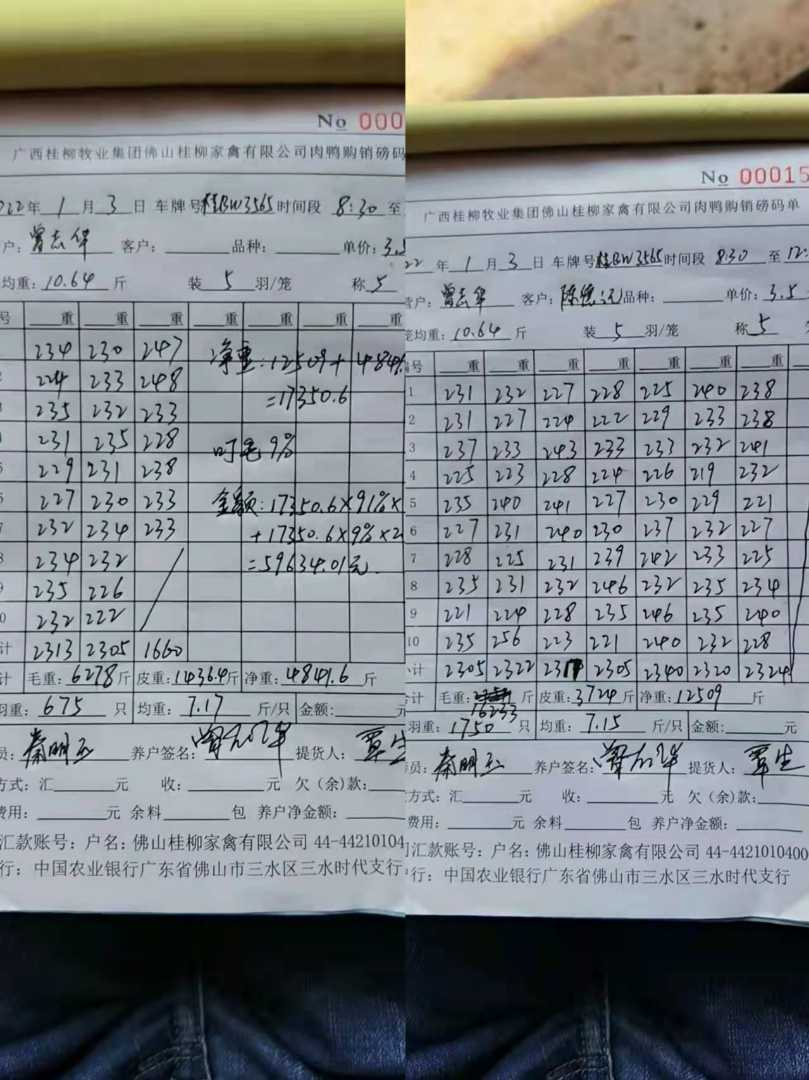 No 000
广西桂柳牧业集团佛山桂柳家禽有限公司肉鸭购销磅码
022年 1 月 3 日 车牌号桂BW3565时间段 8:30 至
户:曾志华 客户: 品种: 单价:3.5
均重:10.64 斤 装 5 羽/笼 称 5
号 重 重 重 重 重 重 重
234 230 247 净重:12509+4841.
224 233 248 =17350.6
235 232 233
231 235 228 叼毛9%
229 231 238
227 230 233 金额:17350.6×91%×
232 234 233 +17350.6×9%×2
234 232 =59634.01元.
235 226
232 222
计 2313 2305 1660
计 毛重:6278斤 皮重:1436.4斤 净重:4841.6 斤
羽重:675 只 均重:7.17 斤/只 金额: 元
员:秦明玉 养户签名: 提货人:覃生
方式:汇 元 收: 元 欠(余)款:
费用: 元 余料 包 养户净金额:
汇款账号:户名:佛山桂柳家禽有限公司 44-44210104
行:中国农业银行广东省佛山市三水区三水时代支行
No 00015
广西桂柳牧业集团佛山桂柳家禽有限公司肉鸭购销磅码单
22 年 1 月 3 日 车牌号桂BW3565时间段 8:30 至 12:
户:曾志华 客户: 品种: 单价:3.5
笼均重:10.64 斤 装 5 羽/笼 称 5
编号 重 重 重 重 重 重 重
1 231 232 227 228 225 240 238
2 231 227 224 222 229 233 238
3 237 233 243 233 233 232 241
4 225 223 228 224 226 219 232
5 235 240 241 227 230 229 221
6 227 231 240 230 237 232 227
7 228 225 231 239 242 233 225
8 235 231 232 246 232 235 234
9 221 224 228 235 246 235 240
10 235 256 223 221 240 232 228
小计 2305 2322 2317 2305 2340 2320 2324
合计 毛重:16233 斤 皮重:3724斤 净重:12509 斤
羽重:1750 只 均重:7.15 斤/只 金额:
员:秦明玉 养户签名: 提货人:覃生
方式:汇 元 收: 元 欠(余)款:
费用: 元 余料 包 养户净金额:
汇款账号:户名:佛山桂柳家禽有限公司 44-4421010400
行:中国农业银行广东省佛山市三水区三水时代支行